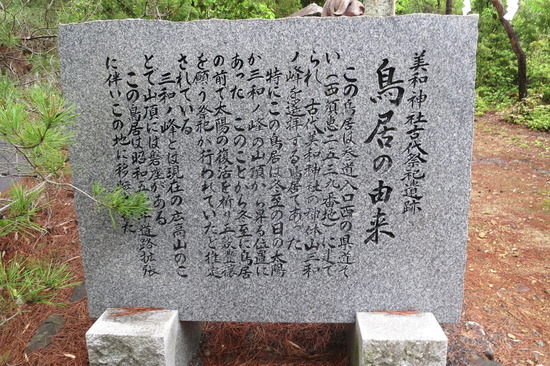 美和神社古代祭祀遺跡
鳥居の由来
この鳥居は参道入口西の県道ぞ
い(西須恵二五三九番地)に建て
られ、古代美和神社の神体山三和
ノ峰を遥拝する鳥居であった
特にこの鳥居は冬至の日の太陽
が三和ノ峰の山頂から昇る位置に
あった このことから冬至に鳥居
の前で太陽の復活を祈り五穀豊穣
を願う祭祀が行われていたと推定
されている
三和ノ峰とは現在の広高山のこ
とで山頂には磐座がある
この鳥居は昭和五 道路拡張
に伴いこの地に移 た